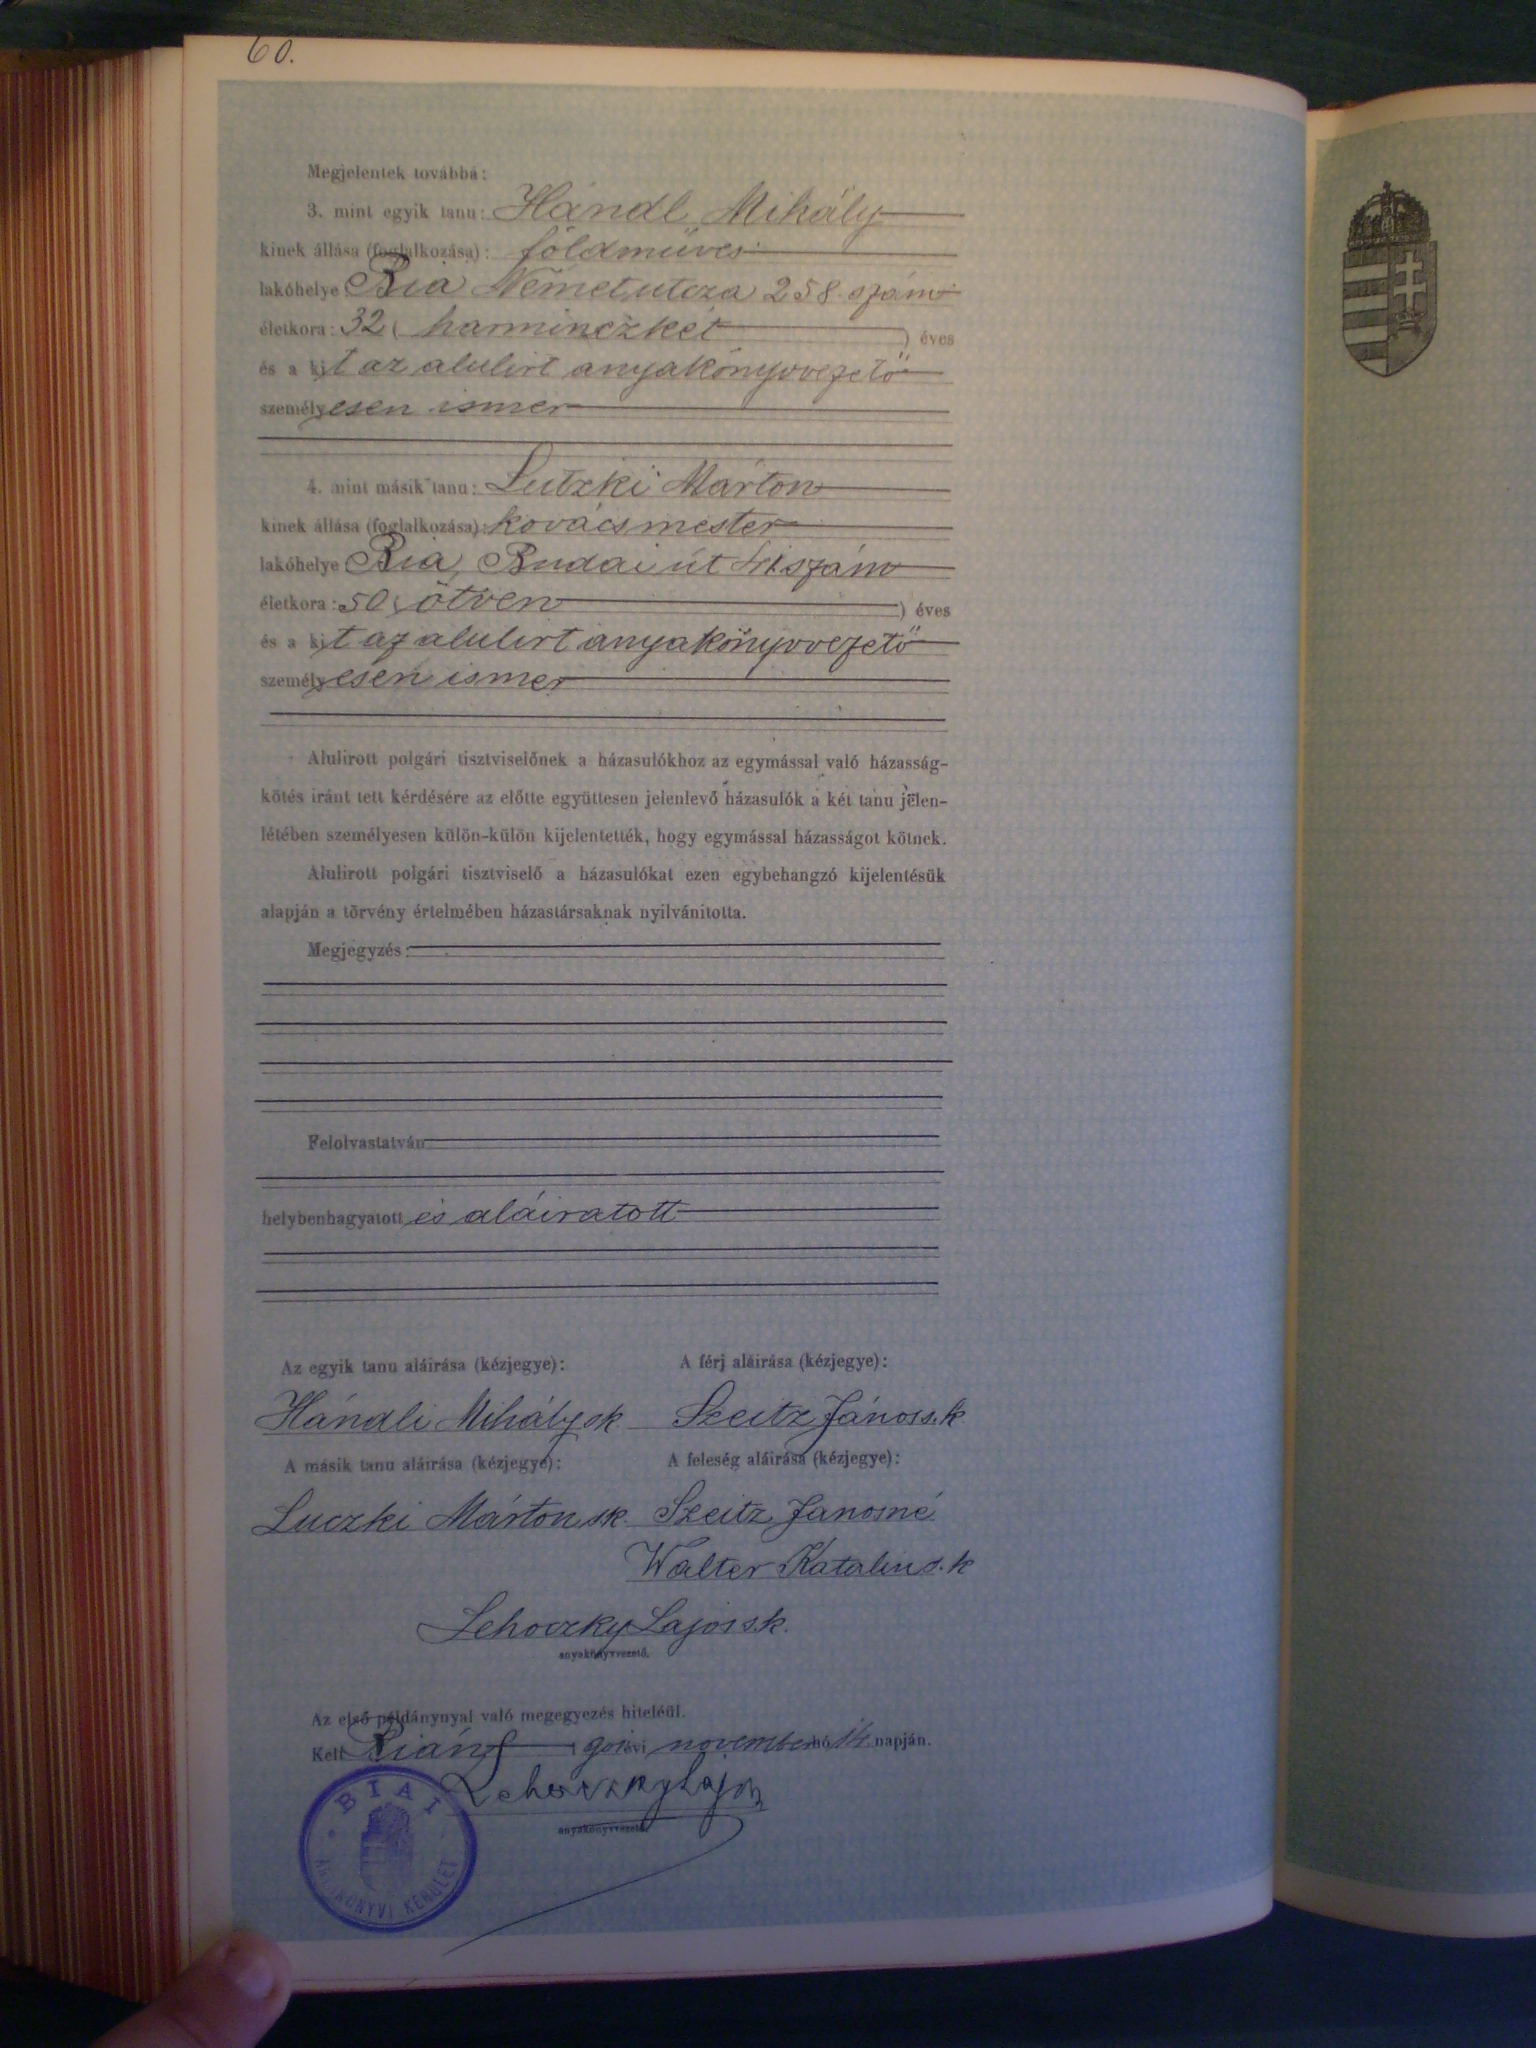 60.
Megjelentek továbbá:
3. mint egyik tanu: Handl Mihály
kinek állása (foglalkozása): földmüves
lakóhelye Bia Németutcza 258. szám
életkora: 32 ( harminczkét ) éves
és a kit az alulirt anyakönyvvezető
személyesen ismer
4. mint másik tanu: Lutzki Márton
kinek állása (foglalkozása): kovácsmester
lakóhelye Bia, Budai út szám
életkora: 50 ( ötven ) éves
és a kit az alulirt anyakönyvvezető
személyesen ismer
Alulirott polgári tisztviselőnek a házasulókhoz az egymással való házasság-
kötés iránt tett kérdésére az előtte együttesen jelenlevő házasulók a két tanu jelen-
létében személyesen külön-külön kijelentették, hogy egymással házasságot kötnek.
Alulirott polgári tisztviselő a házasulókat ezen egybehangzó kijelentésük
alapján a törvény értelmében házastársaknak nyilvánitotta.
Megjegyzés:
Felolvastatván
helybenhagyatott és aláiratott
Az egyik tanu aláirása (kézjegye): A férj aláirása (kézjegye):
Hándli Mihály sk. Szeitz János s.k
A másik tanu aláirása (kézjegye): A feleség aláirása (kézjegye):
Luczki Márton sk. Szeitz Janosné
Walter Katalin s.k
Lehoczky Lajos s.k.
anyakönyvvezető.
Az első példánynyal való megegyezés hiteléül.
Kelt Bián 1 évi november hó 14 napján.
Lehoczky Lajos
anyakönyvvezető.
BIAI
ANYAKÖNYVI KERÜLET